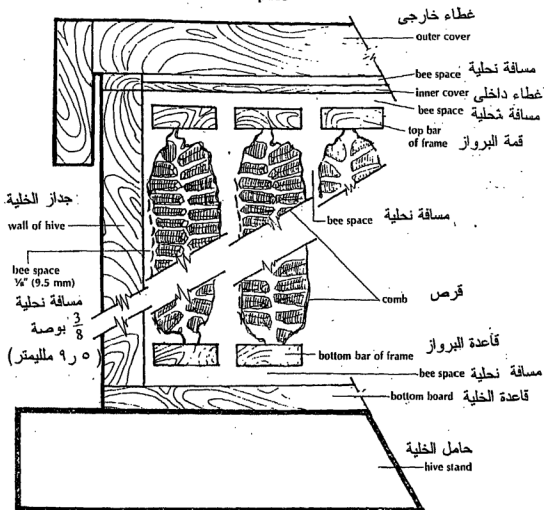 غطاء خارجى
outer cover
bee space مسافة نحلية
inner cover غطاء داخلى
bee space مسافة نحلية
top bar
of frame قمة البرواز
جداز الخلية
wall of hive
bee space مسافة نحلية
bee space
⅜" (9.5 mm)
مسافة نحلية
3/8 بوصة
(٩٫٥ ملليمتر)
comb قرص
قاعدة البرواز
bottom bar of frame
bee space مسافة نحلية
bottom board قاعدة الخلية
حامل الخلية
hive stand